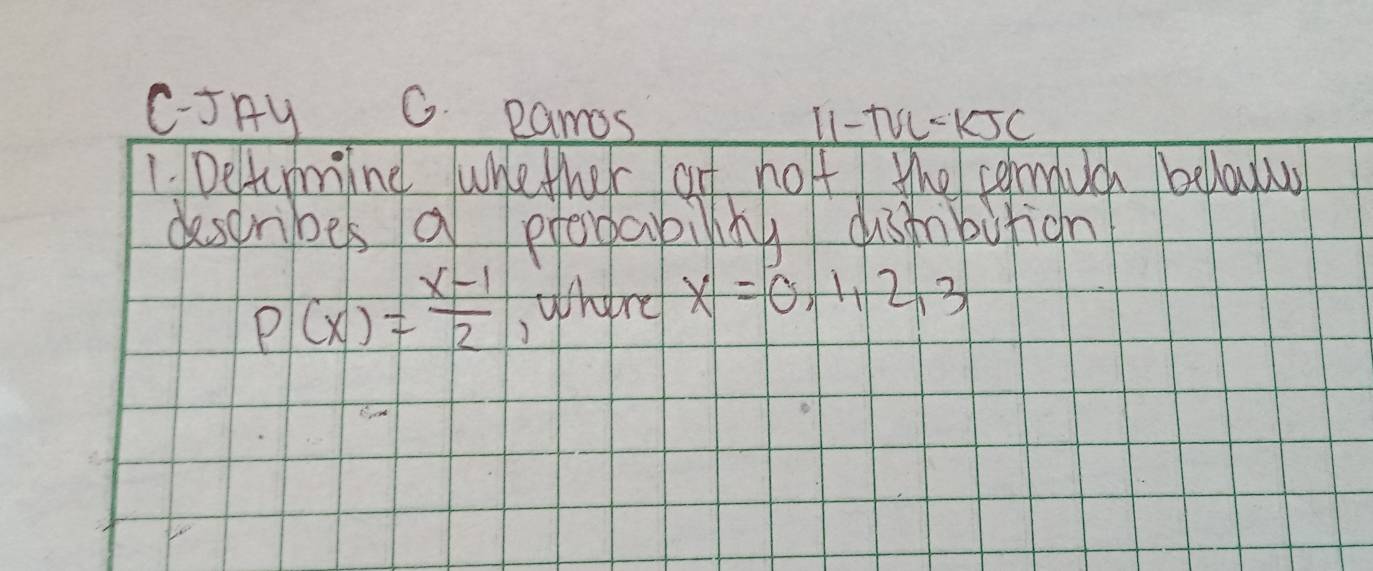 C-JAY G. Ramos 11-TVL-KJC
1. Determine whether or not the formula below
describes a probability distribution
P(x) = x-1/2, where x = 0, 1, 2, 3